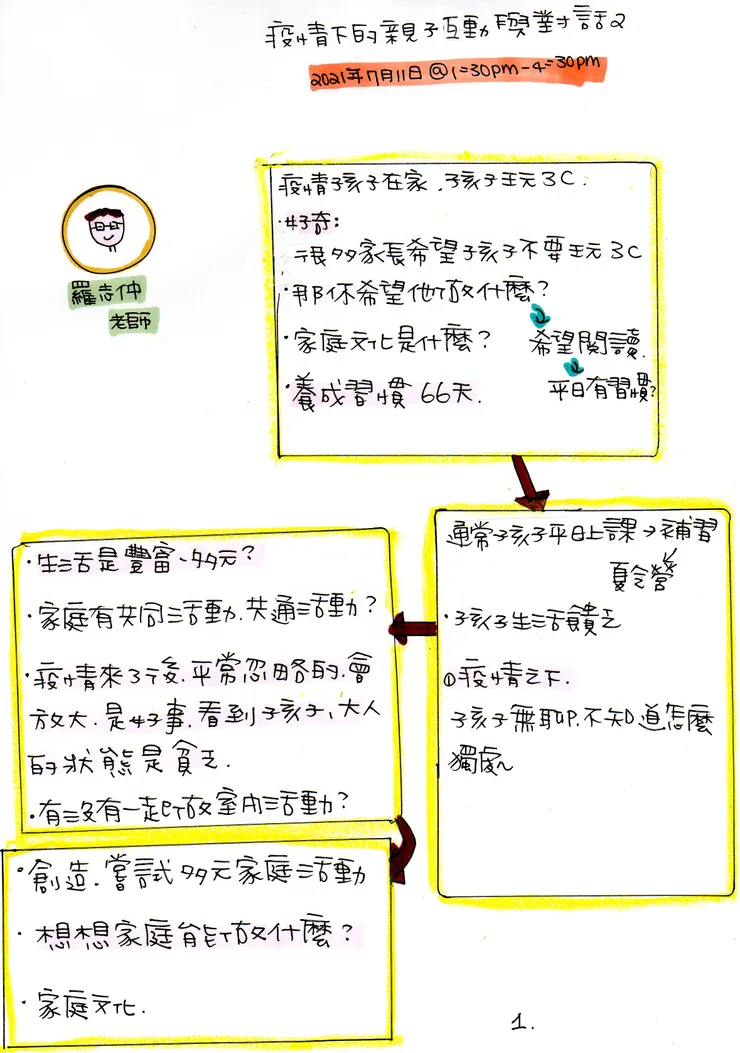 疫情下的親子互動與對話2
2021年7月11日@1:30pm-4:30pm
羅志仲
老師
疫情孩子在家、孩子玩3C.
·好奇:
很多家長希望孩子不要玩3C
·那你希望他做什麼?
·家庭文化是什麼? 希望閱讀.
·養成習慣 66天. 平日有習慣?
通常孩子平日上課→補習
夏令營
·孩子生活饋乏
疫情之下.
孩子無聊,不知道怎麼
獨處
·生活是豐富、多元?
·家庭有共同活動.共通活動?
·疫情來了後.平常忽略的.會
放大.是好事.看到孩子、大人
的狀態是貧乏.
·有沒有一起做室內活動?
·創造.嘗試多元家庭活動
·想想家庭能做什麼?
·家庭文化.
1.